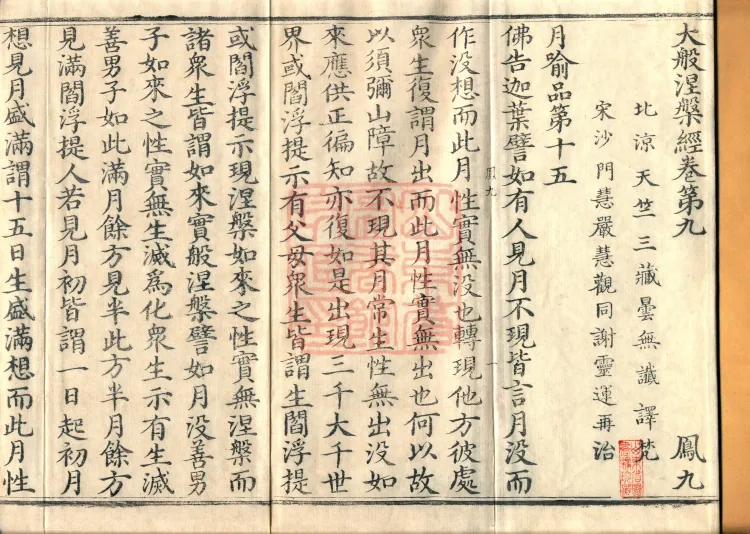 大般涅槃經卷第九 鳳九
北涼天竺三藏曇無讖譯梵
宋沙門慧嚴慧觀同謝靈運再治
月喻品第十五
佛告迦葉譬如有人見月不現皆言月没而
鳳九 一
作没想而此月性實無没也轉現他方彼處
衆生復謂月出而此月性實無出也何以故
以須彌山障故不現其月常生性無出没如
來應供正徧知亦復如是出現三千大千世
界或閻浮提示有父母衆生皆謂生閻浮提
或閻浮提示現涅槃如來之性實無涅槃而
諸衆生皆謂如來實般涅槃譬如月没善男
子如來之性實無生滅爲化衆生示有生滅
善男子如此滿月餘方見半此方半月餘方
見滿閻浮提人若見月初皆謂一日起初月
想見月盛滿謂十五日生盛滿想而此月性